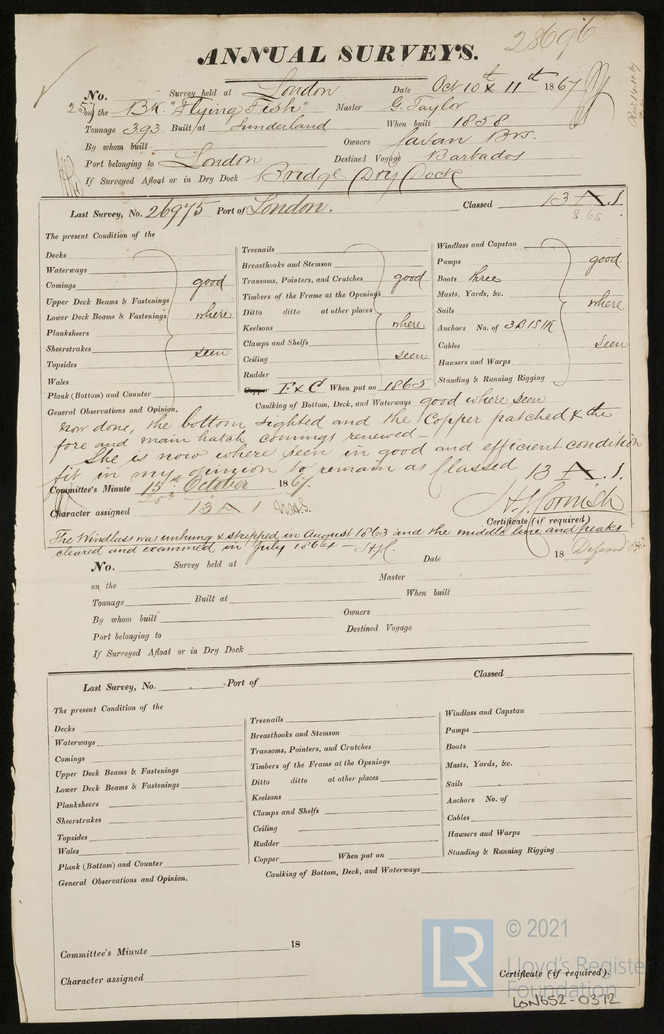 28696
ANNUAL SURVEYS.
No. Survey held at London Date Oct 10th & 11th 1867
257 on the Bk. "Flying Fish" Master G. Taylor
Tonnage 393 Built at Sunderland When built 1858
By whom built Owners Bros.
Port belonging to London Destined Voyage Barbados
If Surveyed Afloat or in Dry Dock Bridge Dry Dock
Last Survey, No. 26975 Port of London. Classed 13 A.1.
8.65
The present Condition of the
Decks
Waterways
Comings good
Upper Deck Beams & Fastenings
Lower Deck Beams & Fastenings where
Planksheers
Sheerstrakes seen
Topsides
Wales
Plank (Bottom) and Counter
Treenails
Breasthooks and Stemson
Transoms, Pointers, and Crutches good
Timbers of the Frame at the Openings
Ditto ditto at other places
Keelsons where
Clamps and Shelfs
Ceiling seen
Rudder
Copper F & C When put on 1865
Windlass and Capstan
Pumps good
Boats three
Masts, Yards, &c.
Sails where
Anchors No. of 3B 1S 1K
Cables seen
Hawsers and Warps
Standing & Running Rigging
General Observations and Opinion, Caulking of Bottom, Deck, and Waterways good where seen
now done, the bottom sighted and the Copper patched & the
fore and main hatch comings renewed -
She is now where seen in good and efficient condition
fit in my opinion to remain as Classed 13 A.1.
Committee's Minute 15th October 1867.
Character assigned 13 A 1
Certificate (if required)
The Windlass was unhung & stripped in August 1863 and the middle line and peaks
cleared and examined in July 1864 -
18
No. Survey held at Date
on the Master
Tonnage Built at When built
By whom built Owners
Port belonging to Destined Voyage
If Surveyed Afloat or in Dry Dock
Last Survey, No. Port of Classed
The present Condition of the
Decks
Waterways
Comings
Upper Deck Beams & Fastenings
Lower Deck Beams & Fastenings
Planksheers
Sheerstrakes
Topsides
Wales
Plank (Bottom) and Counter
General Observations and Opinion,
Treenails
Breasthooks and Stemson
Transoms, Pointers, and Crutches
Timbers of the Frame at the Openings
Ditto ditto at other places
Keelsons
Clamps and Shelfs
Ceiling
Rudder
Copper When put on
Caulking of Bottom, Deck, and Waterways
Windlass and Capstan
Pumps
Boats
Masts, Yards, &c.
Sails
Anchors No. of
Cables
Hawsers and Warps
Standing & Running Rigging
Committee's Minute 18
Character assigned
Certificate (if required).
LR
© 2021
Lloyd's Register
Foundation
LON652-0372